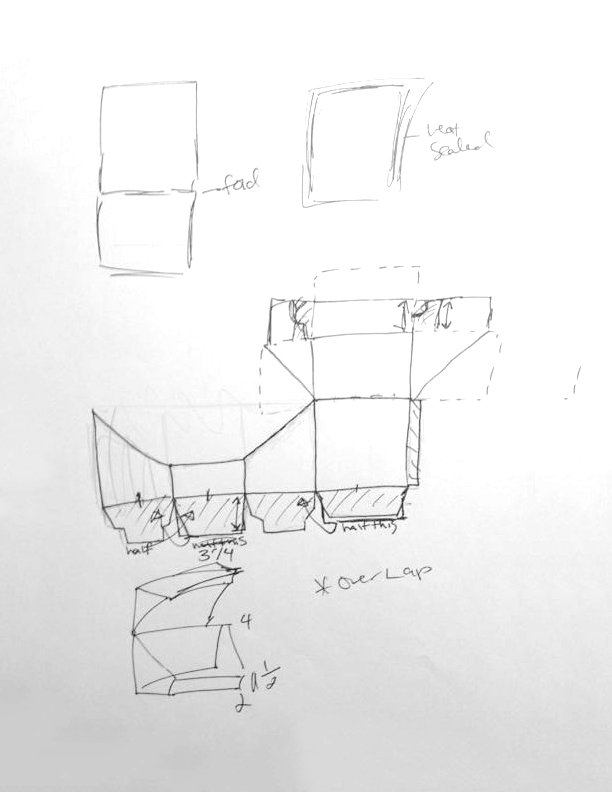 fold
Heat
Sealed
half
half this
3"/4
half this
* OverLap
4
1/2
2